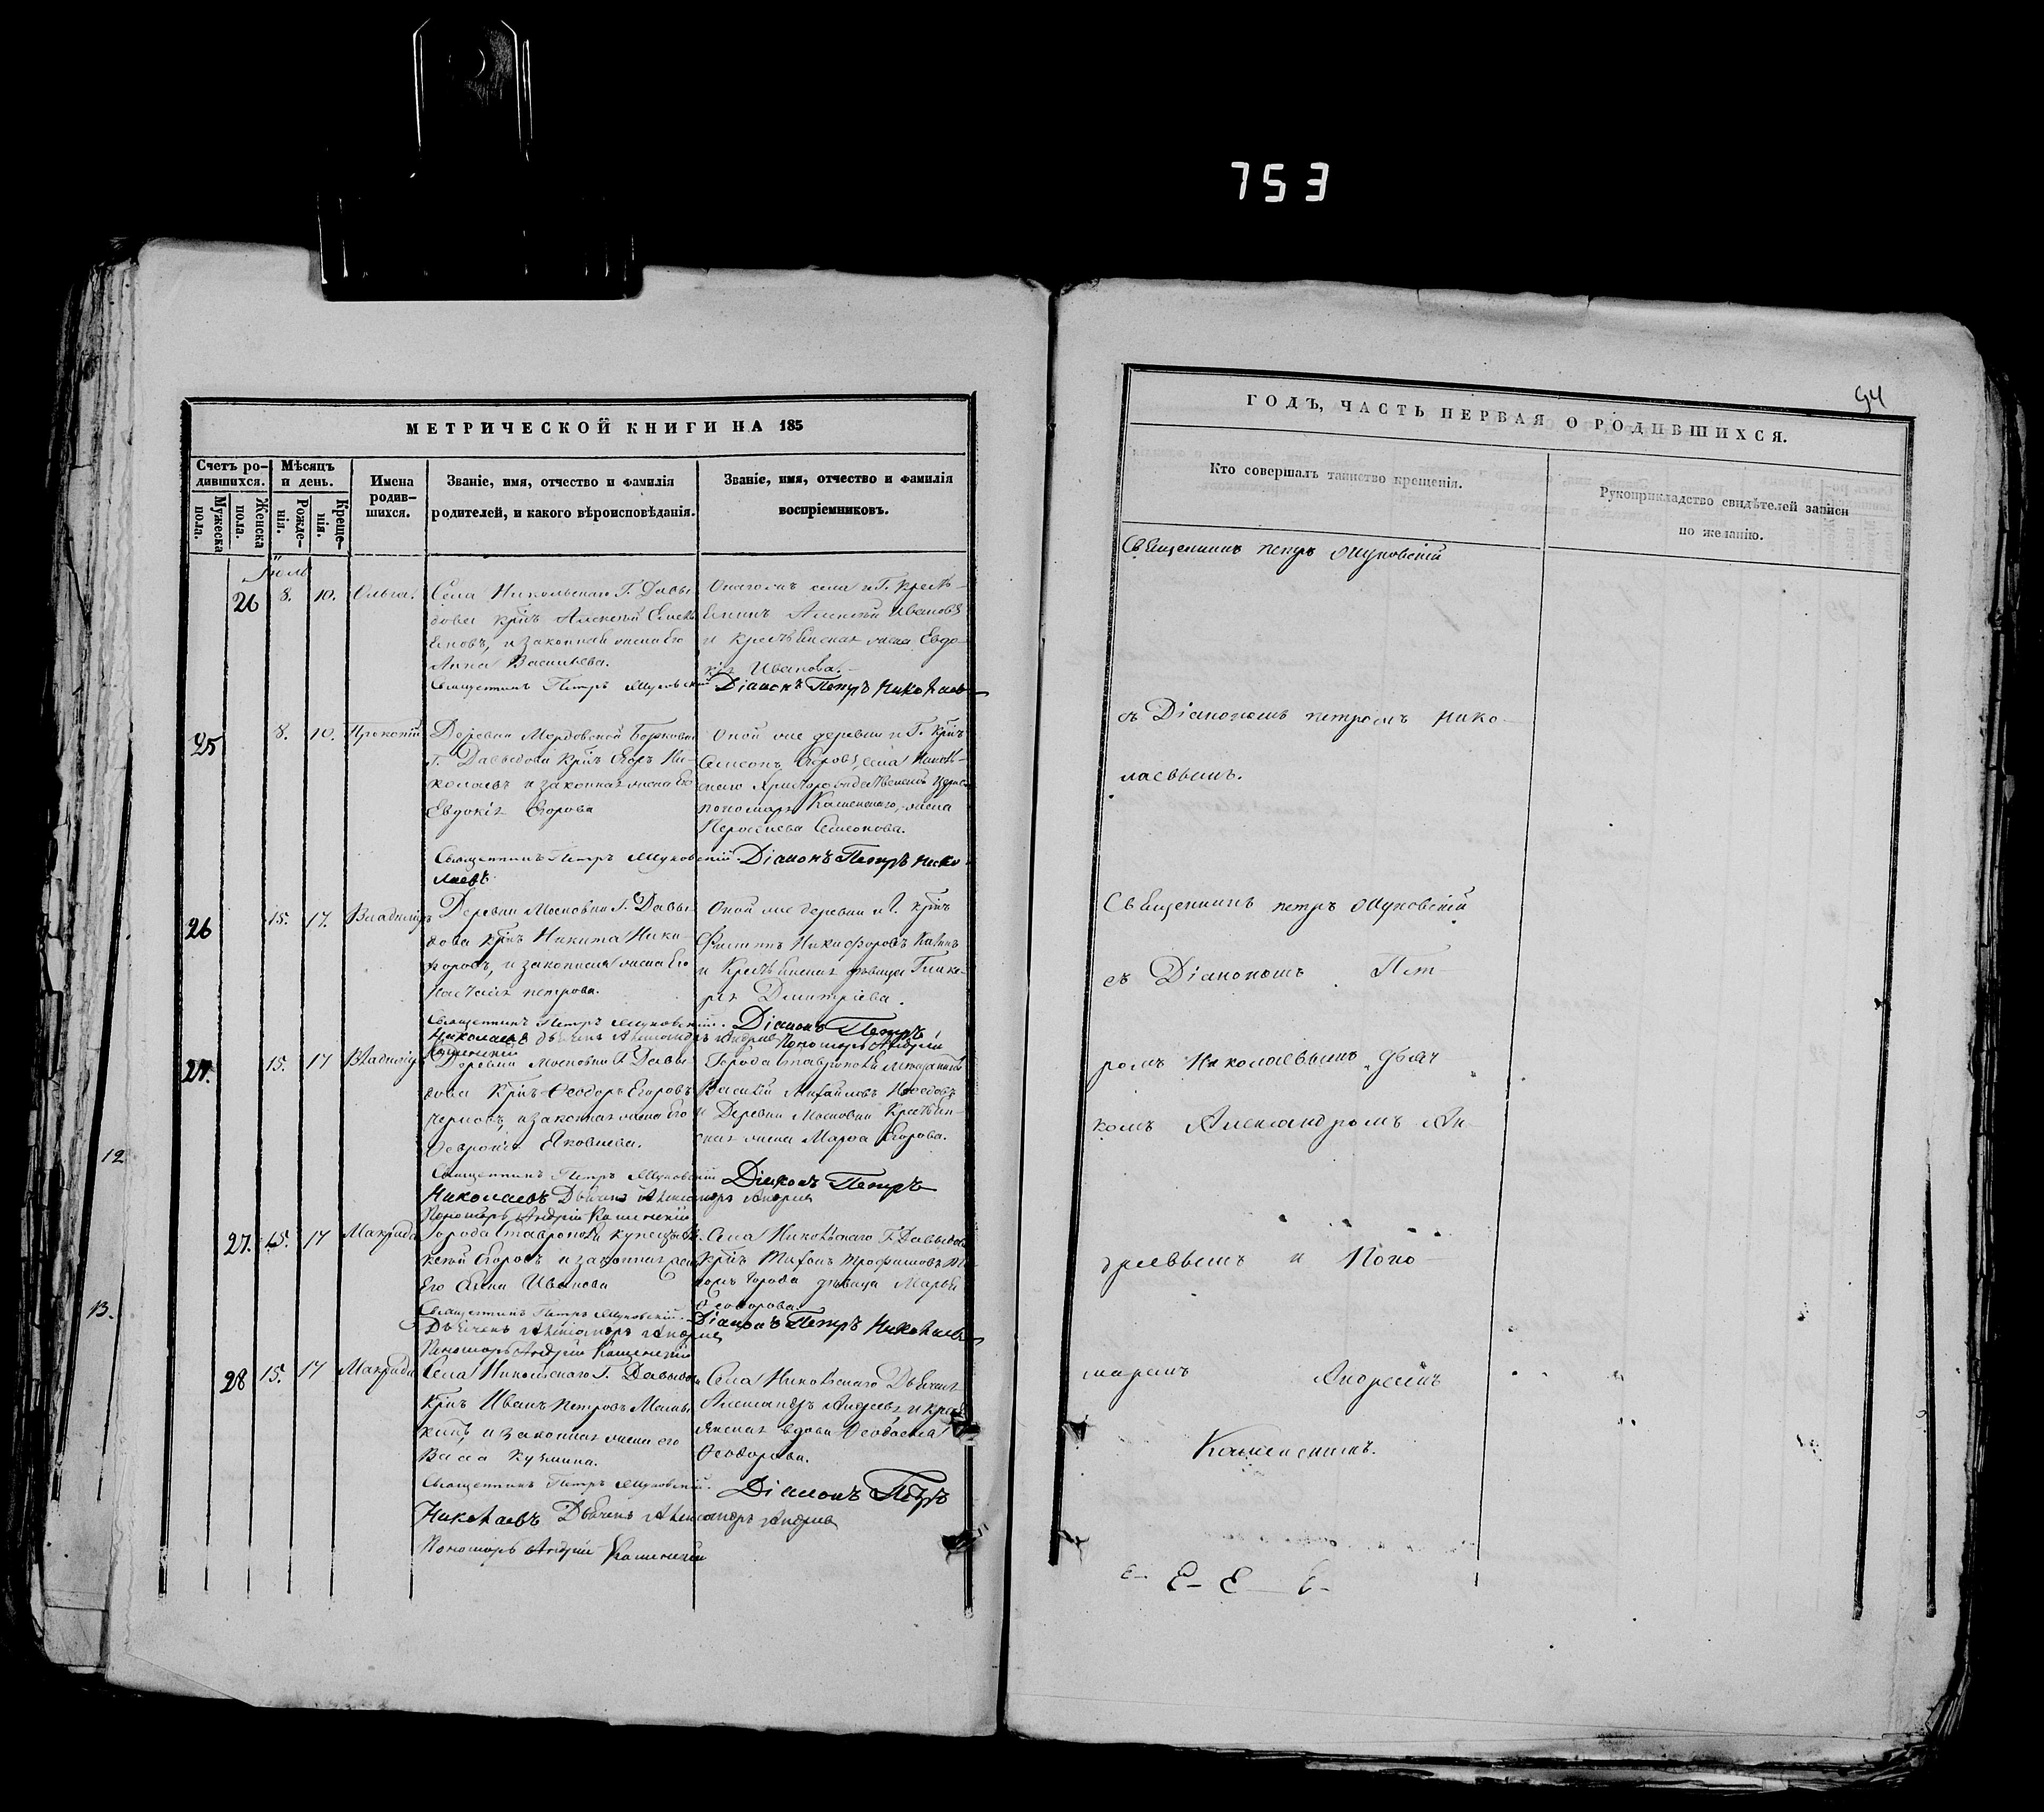 753
МЕТРИЧЕСКОЙ КНИГИ НА 185
Счетъ ро-
дившихся.
Мужеска
пола.
Женска
пола.
Мѣсяцъ
и день.
Рожде-
нія.
Креще-
нія.
Имена
родив-
шихся.
Званіе, имя, отчество и фамилія
родителей, и какого вѣроисповѣданія.
Званіе, имя, отчество и фамилія
воспріемниковъ.
Іюль
26 8. 10. Ольга.
Села Никольскаго Г. Давы
дова крнъ Алексѣй
и законная жена Его
Анна Васильева.
Священникъ Петръ
Онагожъ села и Г. кресть-
Алексѣй Ивановъ
и крестьянская жена Евдо-
кія Иванова.
Діаконъ Петръ Николаевъ
25 8. 10. Прокопій
Деревни Мордовской Борковки
Г. Давыдова крнъ Егоръ Ни-
колаевъ и законная жена Его
Евдокія Егорова
Священникъ Петръ
Оной же деревни и Г. крнъ
Семенъ Егоровъ, села Николь-
скаго Христорождественской церкви
пономаря Каменскаго, жена
Семенова.
Діаконъ Петръ Нико
лаевъ
26 15. 17. Владимиръ
Деревни Московки Г. Давы-
дова крнъ Никита Ники-
форовъ, и законная жена Его
Настасія петрова.
Священникъ Петръ
Николаевъ Дьячекъ Александръ Андреевъ Пономарь Андрей
Каменскій
Оной же деревни и Г. крнъ
Филиппъ Никифоровъ
и Крестьянская дѣвица Глике-
рія Димитріева.
Діаконъ Петръ
27. 15. 17 Владимиръ
Деревни Московки Г. Давы-
дова Крнъ Ѳеодоръ Егоровъ
и законная жена Его
Ѳевронія Яковлева.
Священникъ Петръ
Николаевъ Дьячекъ Александръ Андреевъ
Пономарь Андрей Каменскій
Города Ставрополя мещанинъ
Василій Михайловъ
и Деревни Московки Крестьян-
ская жена Марѳа Егорова.
Діаконъ Петръ
27. 15. 17 Макрида
Города Ставрополя купецъ
Егоровъ и законная жена
Его Анна Иванова
Священникъ Петръ
Дьячекъ Александръ Андреевъ
Пономарь Андрей Каменскій
Села Никольскаго Г. Давыдова
крнъ Тихонъ Трофимовъ
города дѣвица Марья
Ѳеодорова.
Діаконъ Петръ Николаевъ
28 15. 17 Макрида
Села Никольскаго Г. Давыдова
Крнъ Иванъ Петровъ
и законная жена его
Васса Кузмина.
Священникъ Петръ
Николаевъ Дьячекъ Александръ Андреевъ
Пономарь Андрей Каменскій
Села Никольскаго Дьячекъ
Александръ Андреевъ и крестъ
янская вдова
Ѳеодорова.
Діаконъ Петръ
12
13.
94
ГОДЪ, ЧАСТЬ ПЕРВАЯ О РОДИВШИХСЯ.
Кто совершалъ таинство крещенія.
Рукоприкладство свидѣтелей записи
по желанію.
Священникъ петръ
съ Діакономъ петромъ Нико-
лаевымъ.
Священникъ петръ
съ Діакономъ Пет-
ромъ Николаевымъ, Дьяч
комъ Александромъ Ан-
дреевымъ и Поно-
маремъ Андреемъ
Каменскимъ.